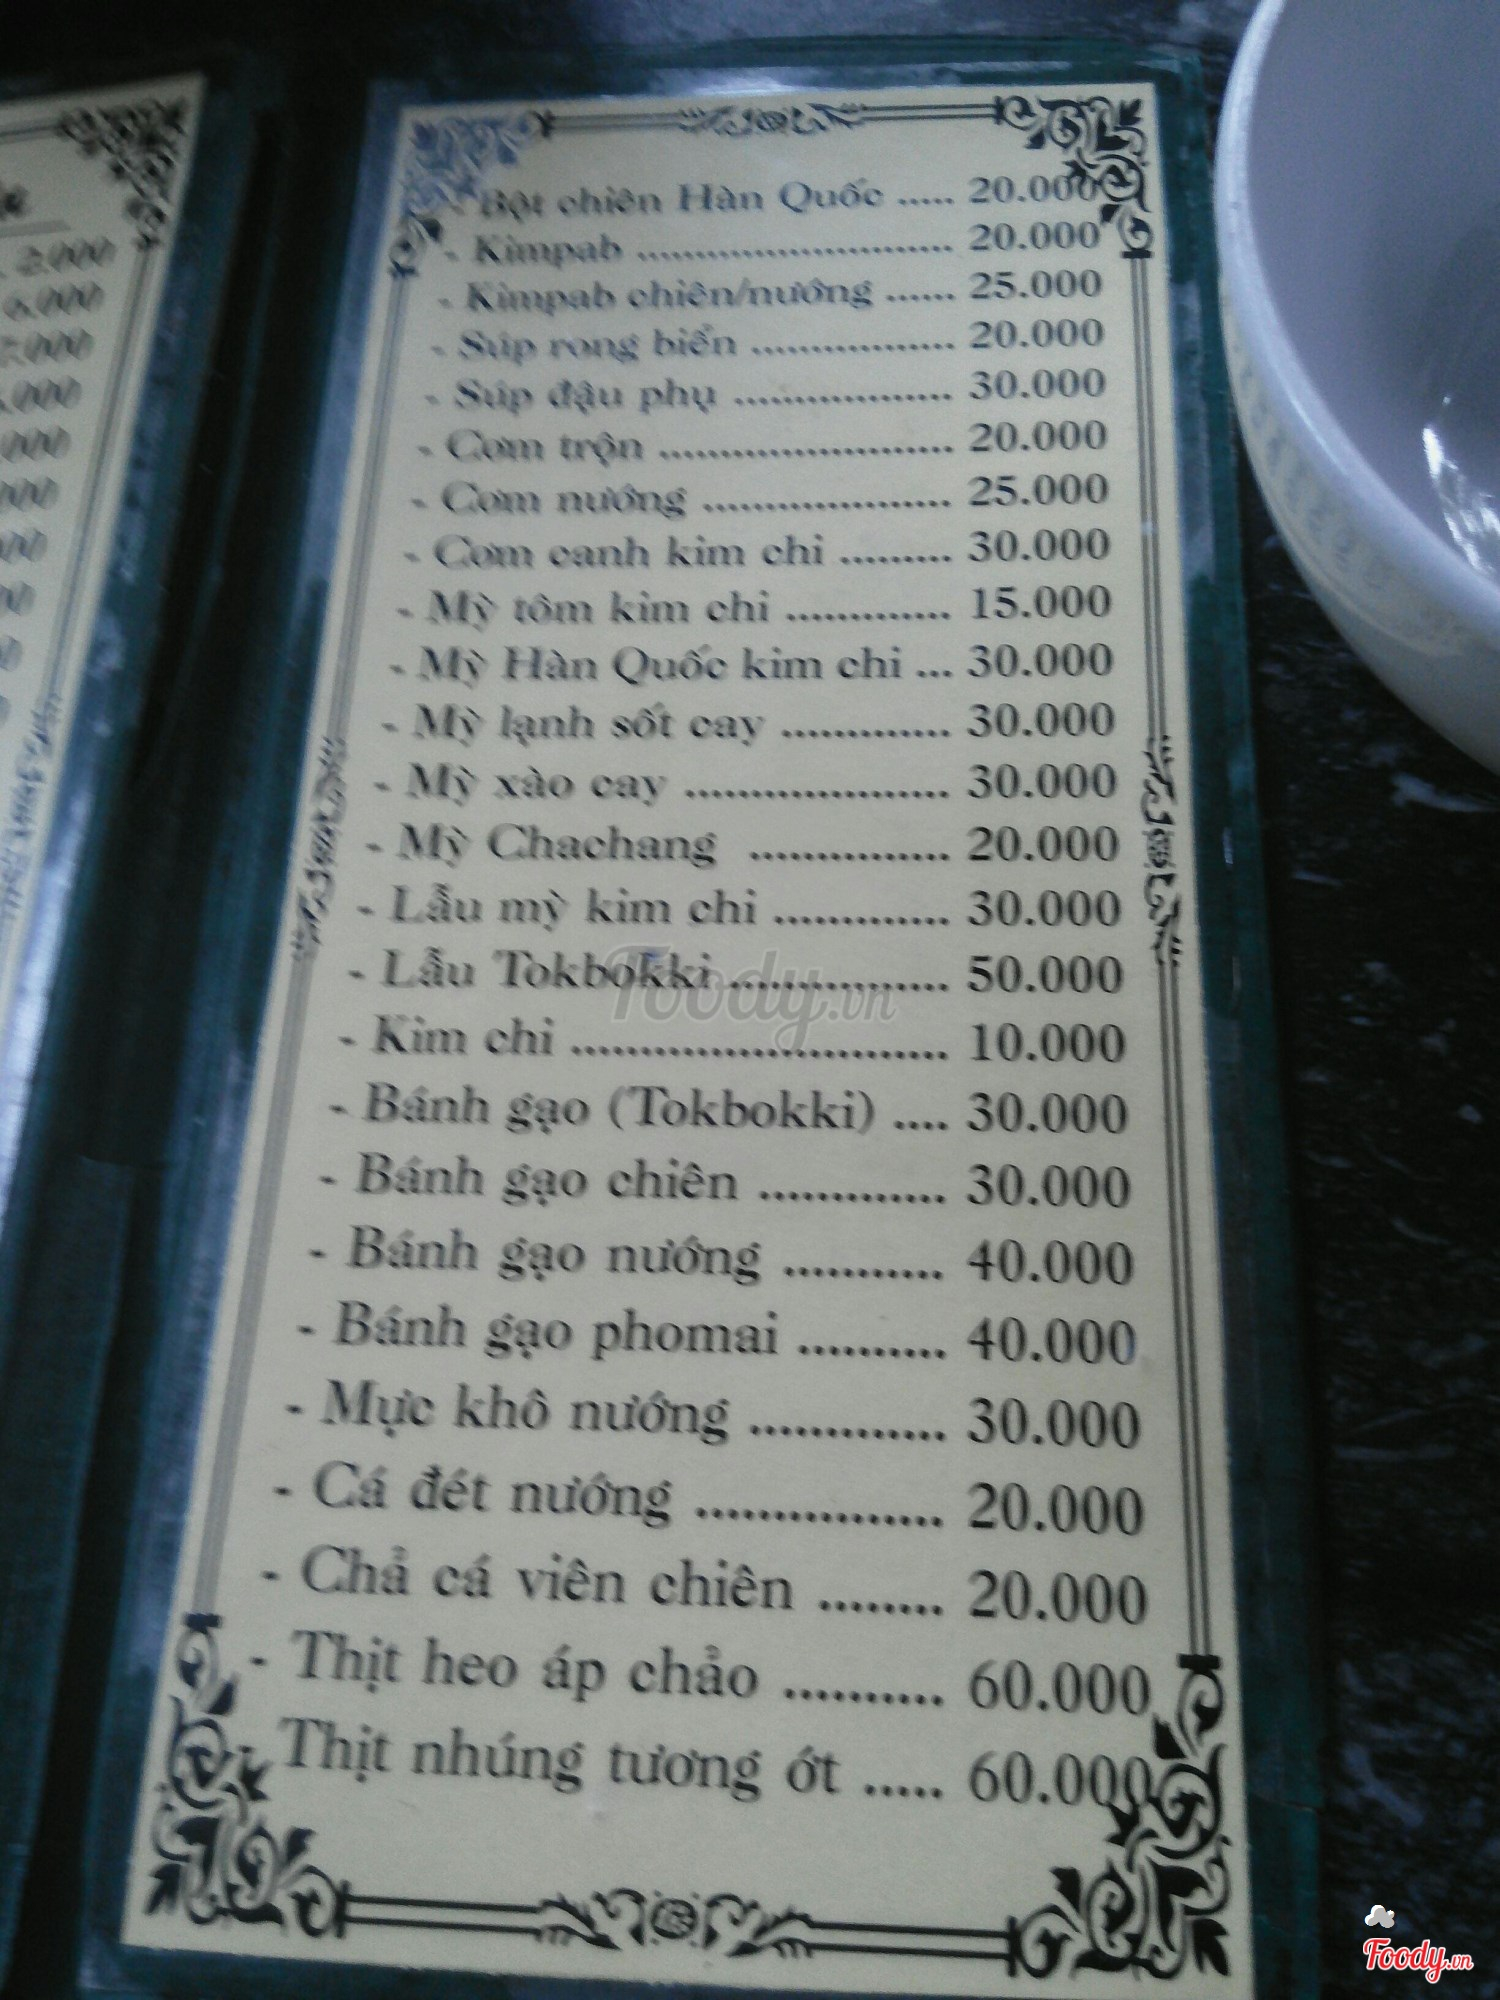 2.000
6.000
.000
.000
.000
000
- Bột chiên Hàn Quốc ..... 20.000
- Kimpab ............................ 20.000
- Kimpab chiên/nướng ...... 25.000
- Súp rong biển .................. 20.000
- Súp đậu phụ ................... 30.000
- Cơm trộn .......................... 20.000
- Cơm nướng ...................... 25.000
- Cơm canh kim chi ......... 30.000
- Mỳ tôm kim chi ............. 15.000
- Mỳ Hàn Quốc kim chi ... 30.000
- Mỳ lạnh sốt cay ............. 30.000
- Mỳ xào cay .................... 30.000
- Mỳ Chachang ............... 20.000
- Lẩu mỳ kim chi ............. 30.000
- Lẩu Tokbokki ................ 50.000
- Kim chi ........................... 10.000
- Bánh gạo (Tokbokki) .... 30.000
- Bánh gạo chiên ............. 30.000
- Bánh gạo nướng ........... 40.000
- Bánh gạo phomai .......... 40.000
- Mực khô nướng ............. 30.000
- Cá đét nướng ................ 20.000
- Chả cá viên chiên ........ 20.000
- Thịt heo áp chảo .......... 60.000
- Thịt nhúng tương ớt ..... 60.000
Foody.vn
Foody.vn